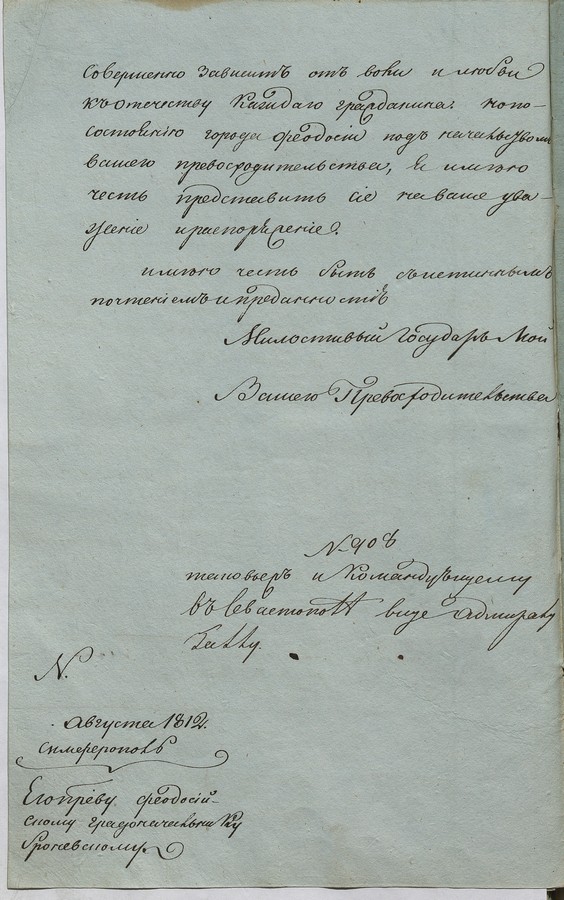 совершенно зависитъ отъ воли и любви
къ отечеству каждаго гражданина: но по-
состоянію города Феодосіи подъ начальствомъ
вашего превосходительства, я имѣю
честь представить сіе на ваше ува-
женіе и распоряженіе.
имѣю честь быть съ истиннымъ
почтеніемъ и преданностію
Милостивый Государь Мой
Вашего Превосходительства
N. 908
таковъже и Командующему
въ Севастополѣ вице адмиралу
N.
августа 1812.
симферополь
Его преву. феодосій-
скому градоначальнику
броневскому.